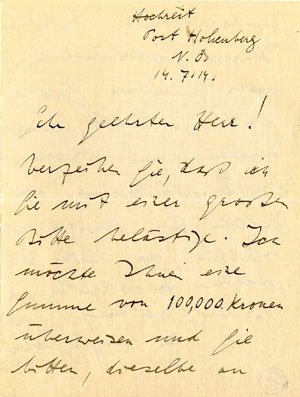 Hochreit
Post Hohenberg
N.Ö.
14.7.14.
Sehr geehrter Herr!
Verzeihen Sie, daß ich
Sie mit einer großen
Bitte belästige. Ich
möchte Ihnen eine
Summe von 100,000. Kronen
überweisen und Sie
bitten, dieselbe an